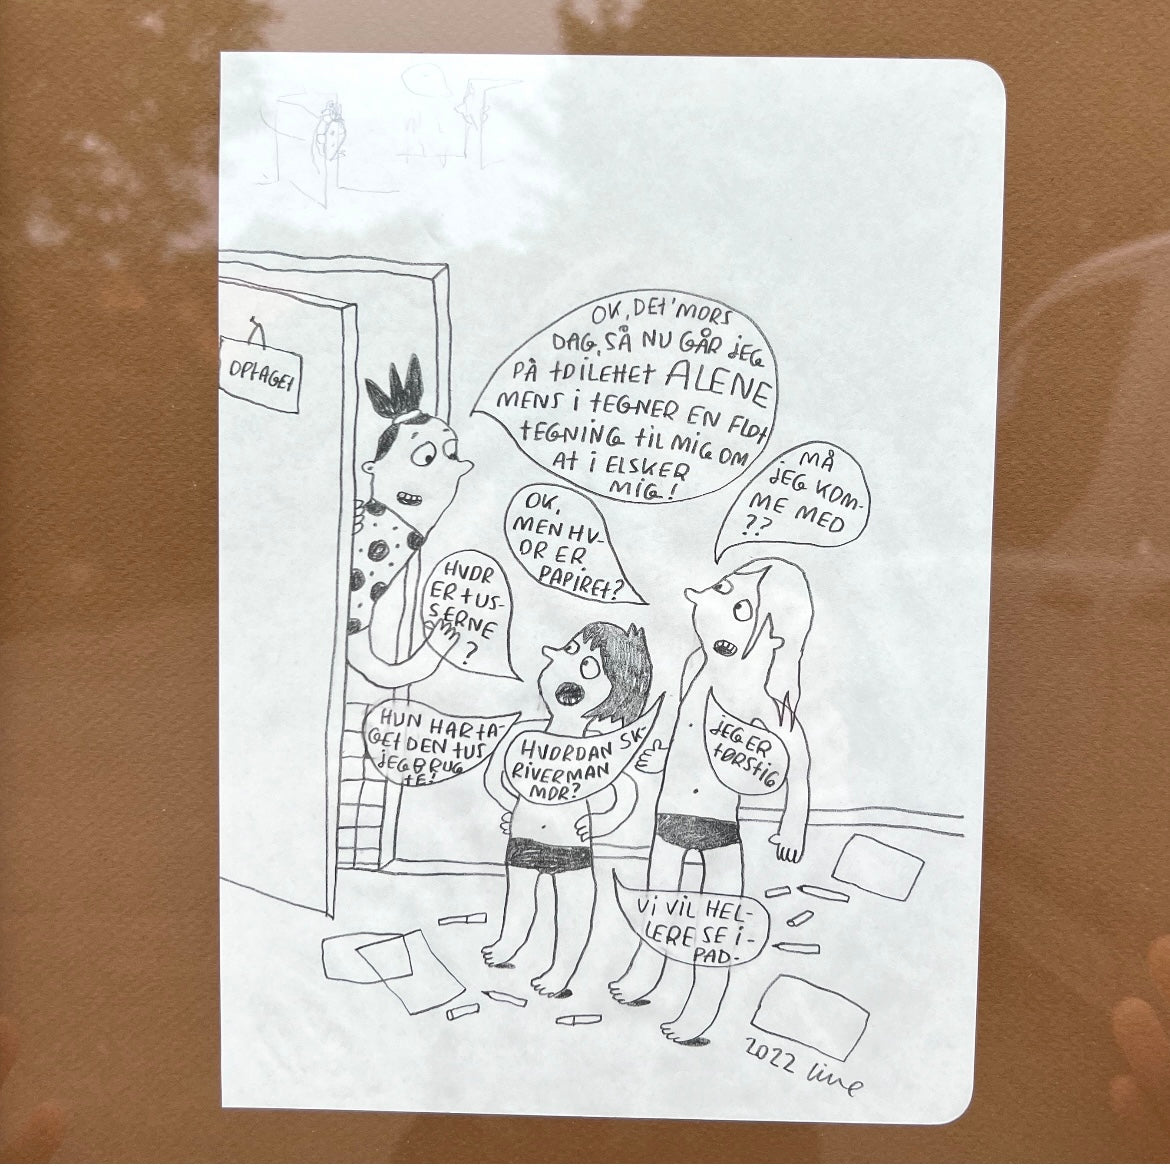 OPTAGET
OK, DET'MORS
DAG, SÅ NU GÅR JEG
PÅ TOILETTET ALENE
MENS I TEGNER EN FLOT
TEGNING TIL MIG OM
AT I ELSKER
MIG!
MÅ
JEG KOM-
ME MED
??
OK,
MEN HV-
OR ER
PAPIRET?
HVOR
ER TUS-
SERNE
?
HUN HAR TA-
GET DEN TUS
JEG BRUG
TE!
HVORDAN SK-
RIVERMAN
MOR?
JEG ER
TØRSTIG
VI VIL HEL-
LERE SE I-
PAD-
2022 Line